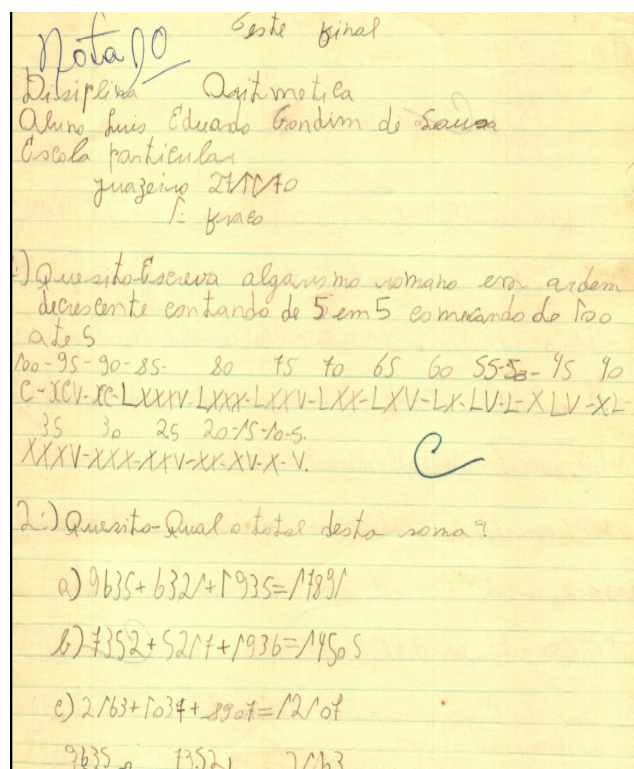 Teste final
Nota 10
Disiplina Aritmetica
Aluno Luis Eduardo Gondim de Sousa
Escola particular
Juazeiro 27/11/70
1: fraco
1:) Quesito-Escreva algarismo romano em ordem
decrescente contando de 5 em 5 comesando do 100
ate 5
100-95-90-85- 80 75 70 65 60 55-50- 45 40
C-XCV-XC-LXXXV-LXXX-LXXV-LXX-LXV-LX-LV-L-XLV-XL-
35 30 25 20-15-10-5.
XXXV-XXX-XXV-XX-XV-X-V.
C
2:) Quesito-Qual o total desta soma?
a) 9635+6321+1935=17891
b) 7352+5217+1936=14505
c) 2163+1037+8907=12107
9635 7352 2163